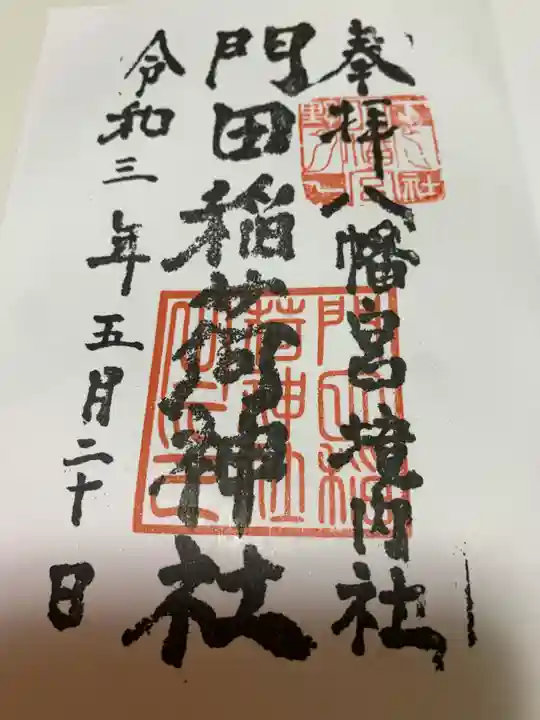 奉拝八幡宮境内社
門田稲荷神社
令和三年五月二十日